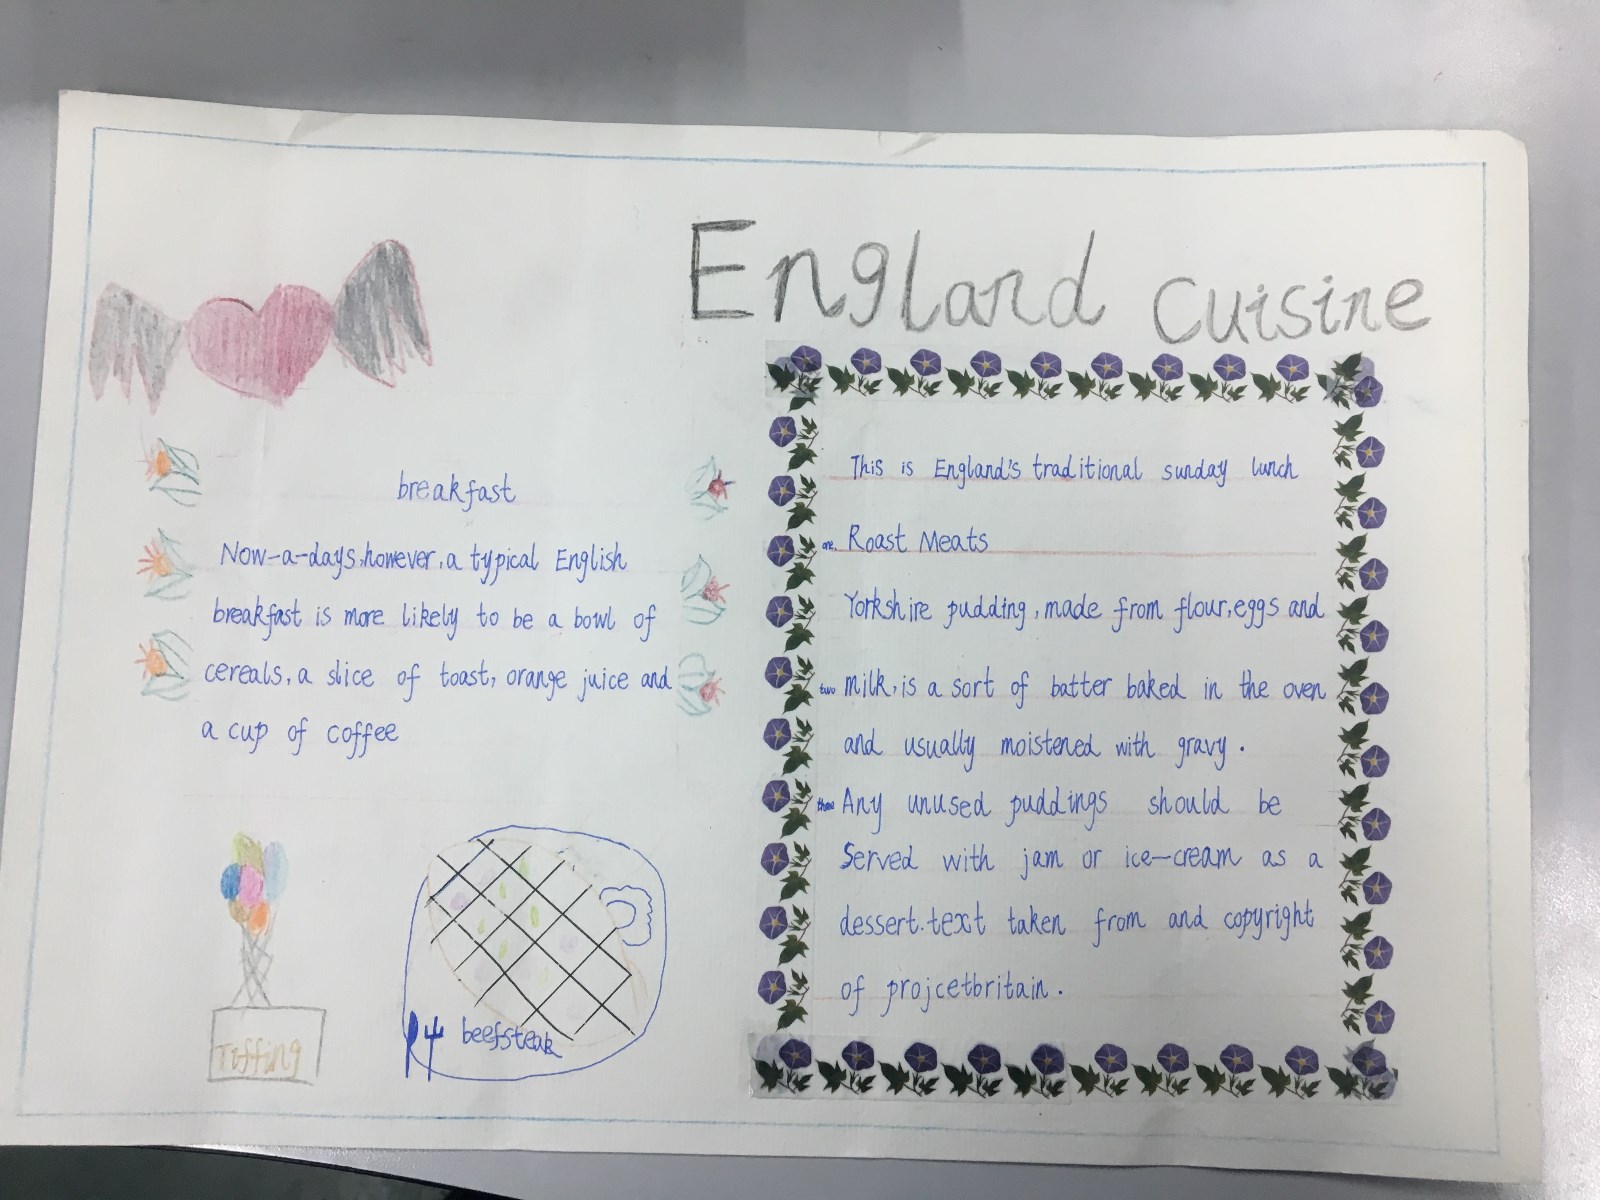 England Cuisine
breakfast
Now-a-days,however,a typical English
breakfast is more likely to be a bowl of
cereals, a slice of toast, orange juice and
a cup of coffee
Tiffing
beefsteak
This is England's traditional sunday lunch
one. Roast Meats
Yorkshire pudding, made from flour,eggs and
two milk, is a sort of batter baked in the oven
and usually moistened with gravy.
three Any unused puddings should be
Served with jam or ice-cream as a
dessert.text taken from and copyright
of projcetbritain.